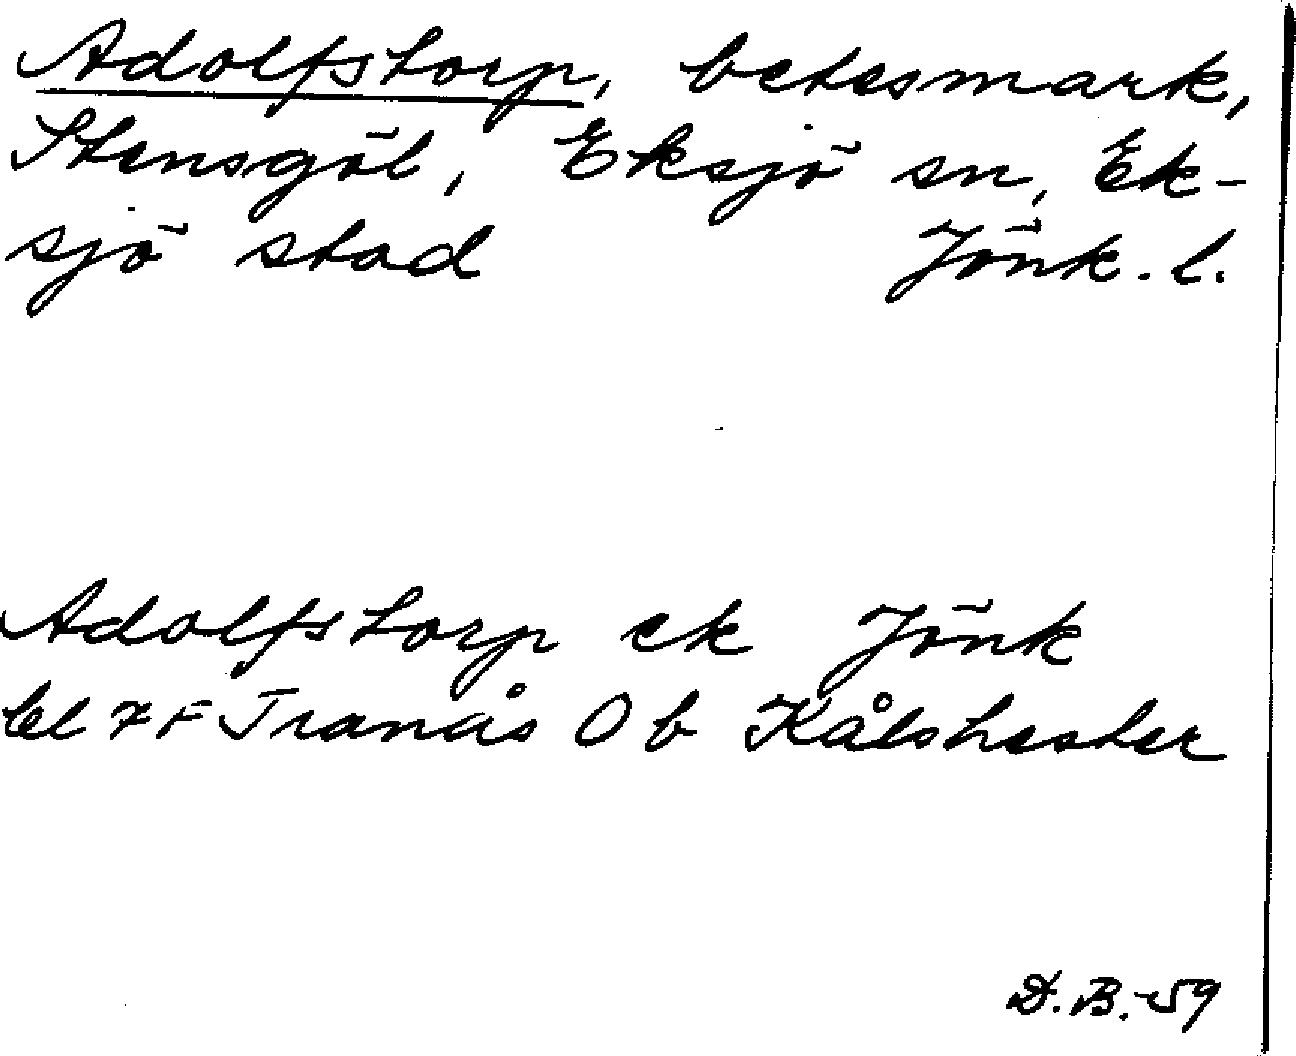 Adolfstorp, betesmark,
Stensgöl, Eksjö sn, Ek-
sjö stad Jönk. l.
Adolfstorp ek Jönk
bl 7 F Tranås O b Kålshester
D.B.-59